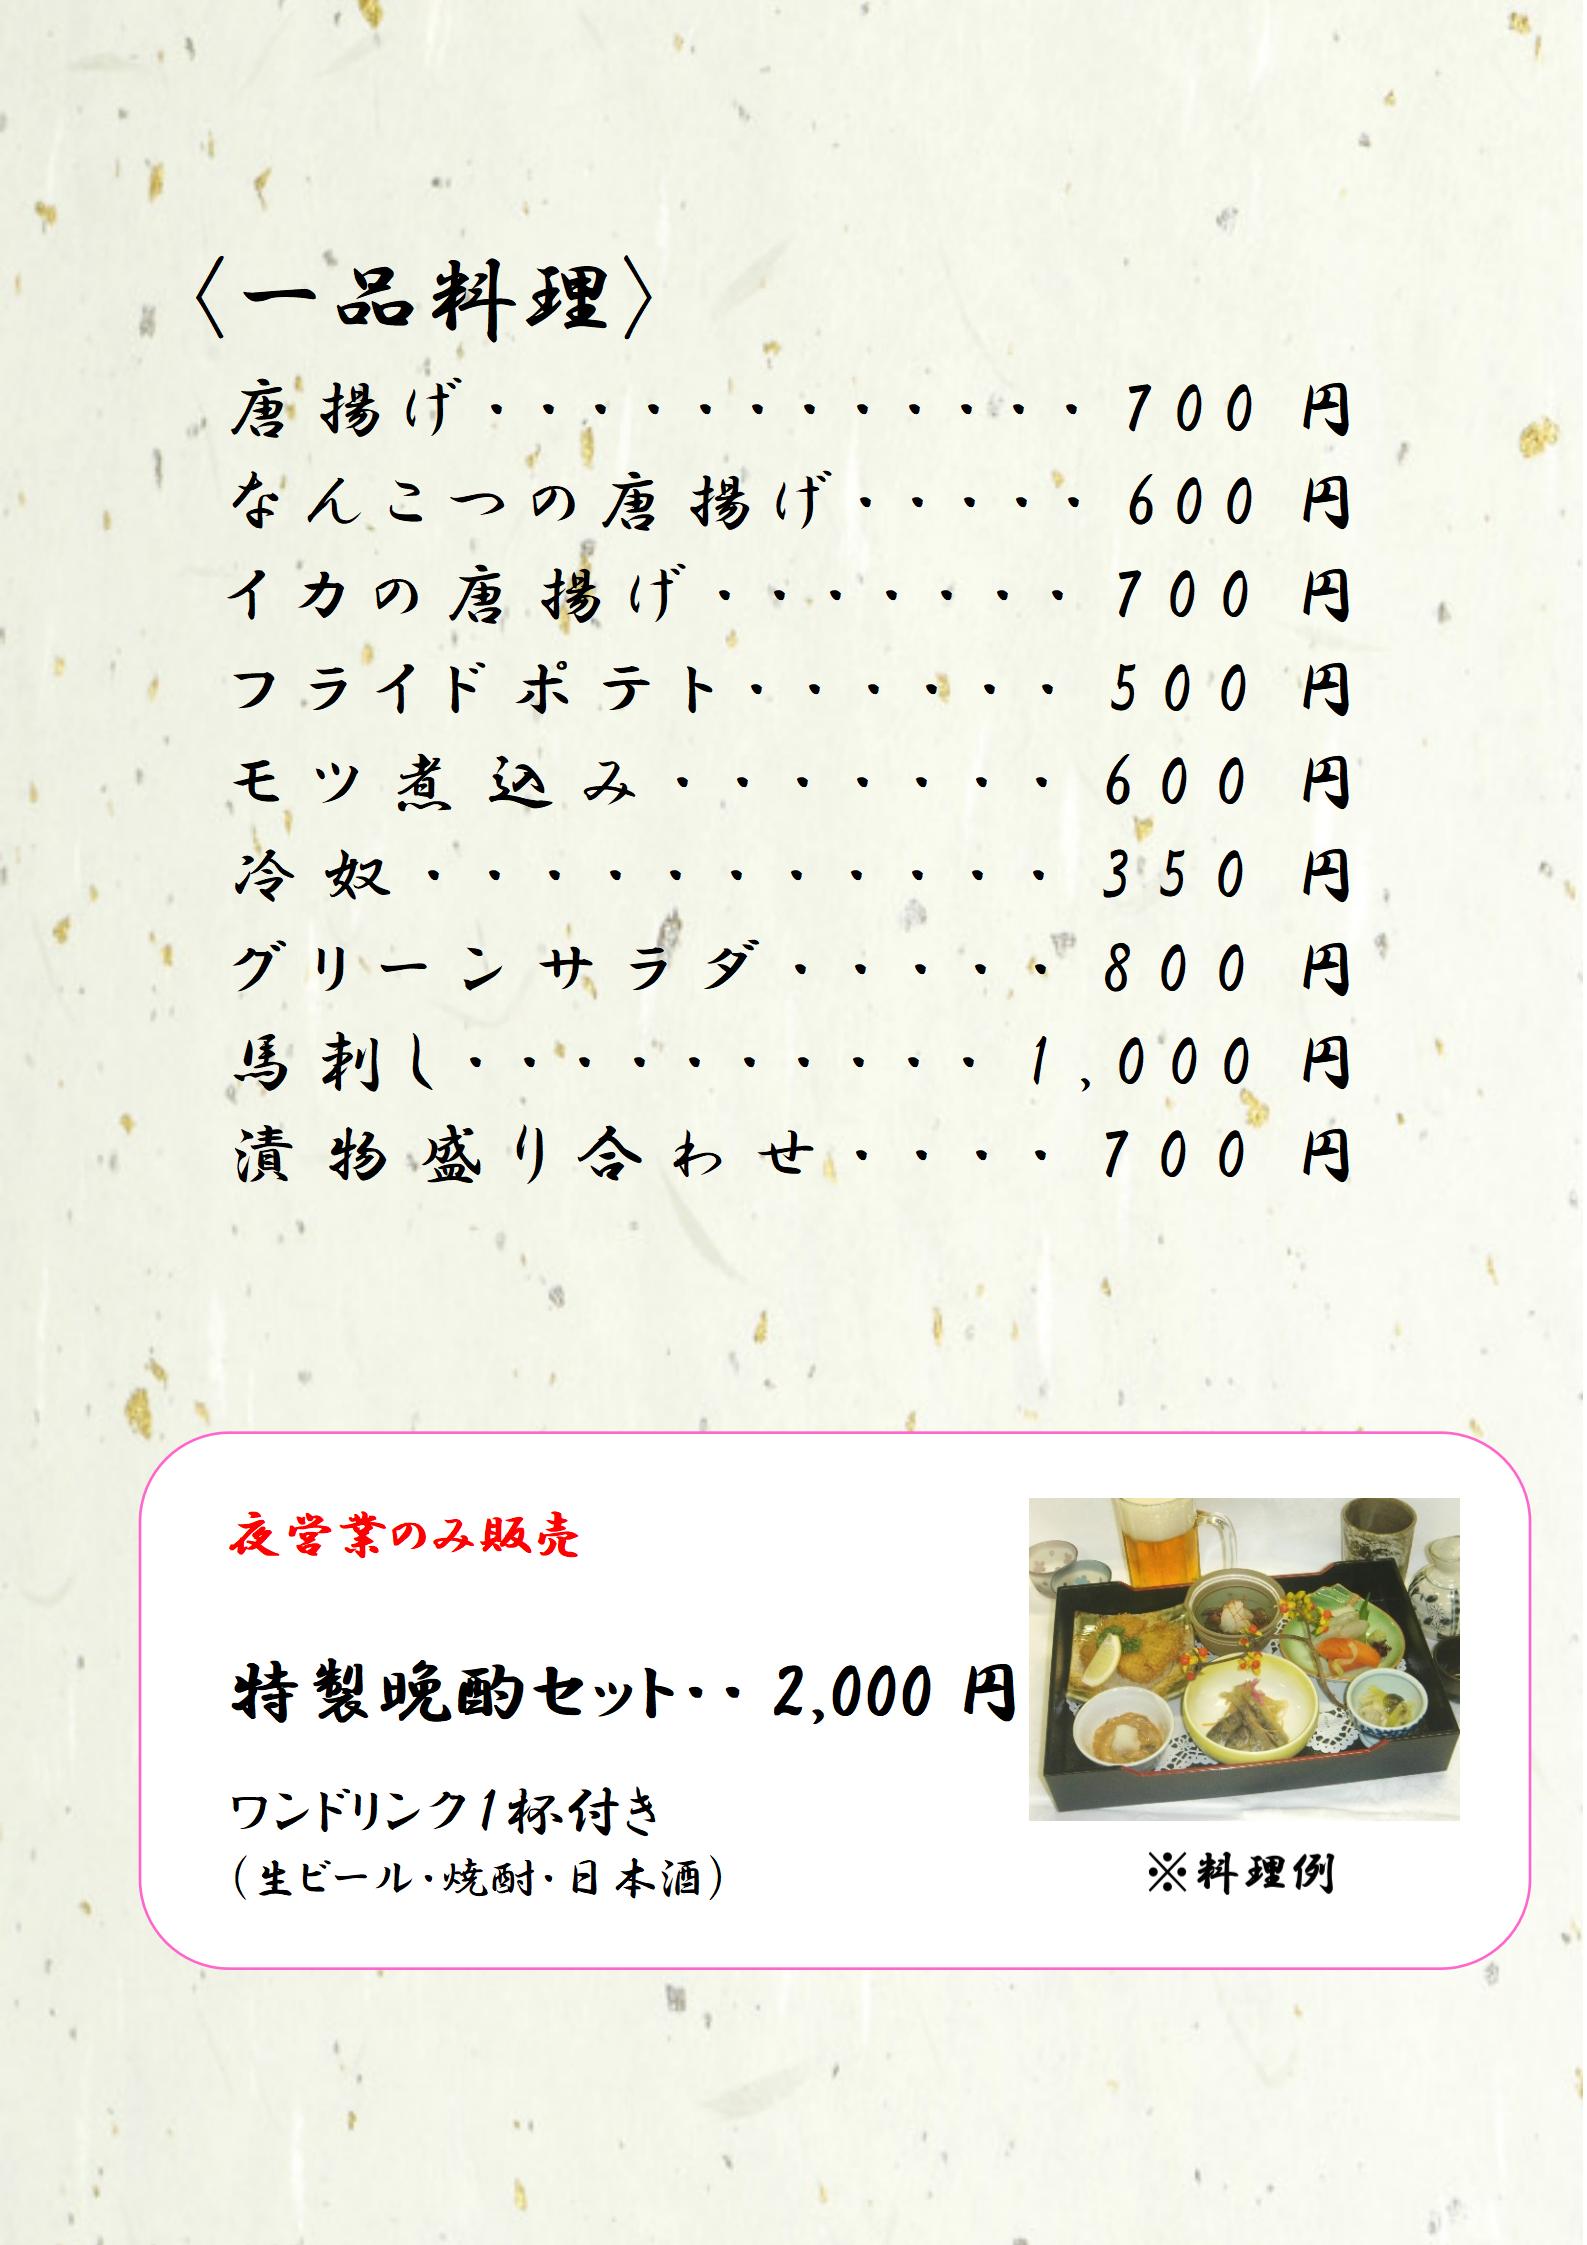 〈一品料理〉
唐揚げ・・・・・・・・・・・・700 円
なんこつの唐揚げ・・・・・600 円
イカの唐揚げ・・・・・・・700 円
フライドポテト・・・・・・500 円
モツ煮込み・・・・・・・600 円
冷奴・・・・・・・・・・・350 円
グリーンサラダ・・・・・800 円
馬刺し・・・・・・・・・・1,000 円
漬物盛り合わせ・・・・700 円
夜営業のみ販売
特製晩酌セット・・2,000 円
ワンドリンク1杯付き
(生ビール・焼酎・日本酒)
※料理例